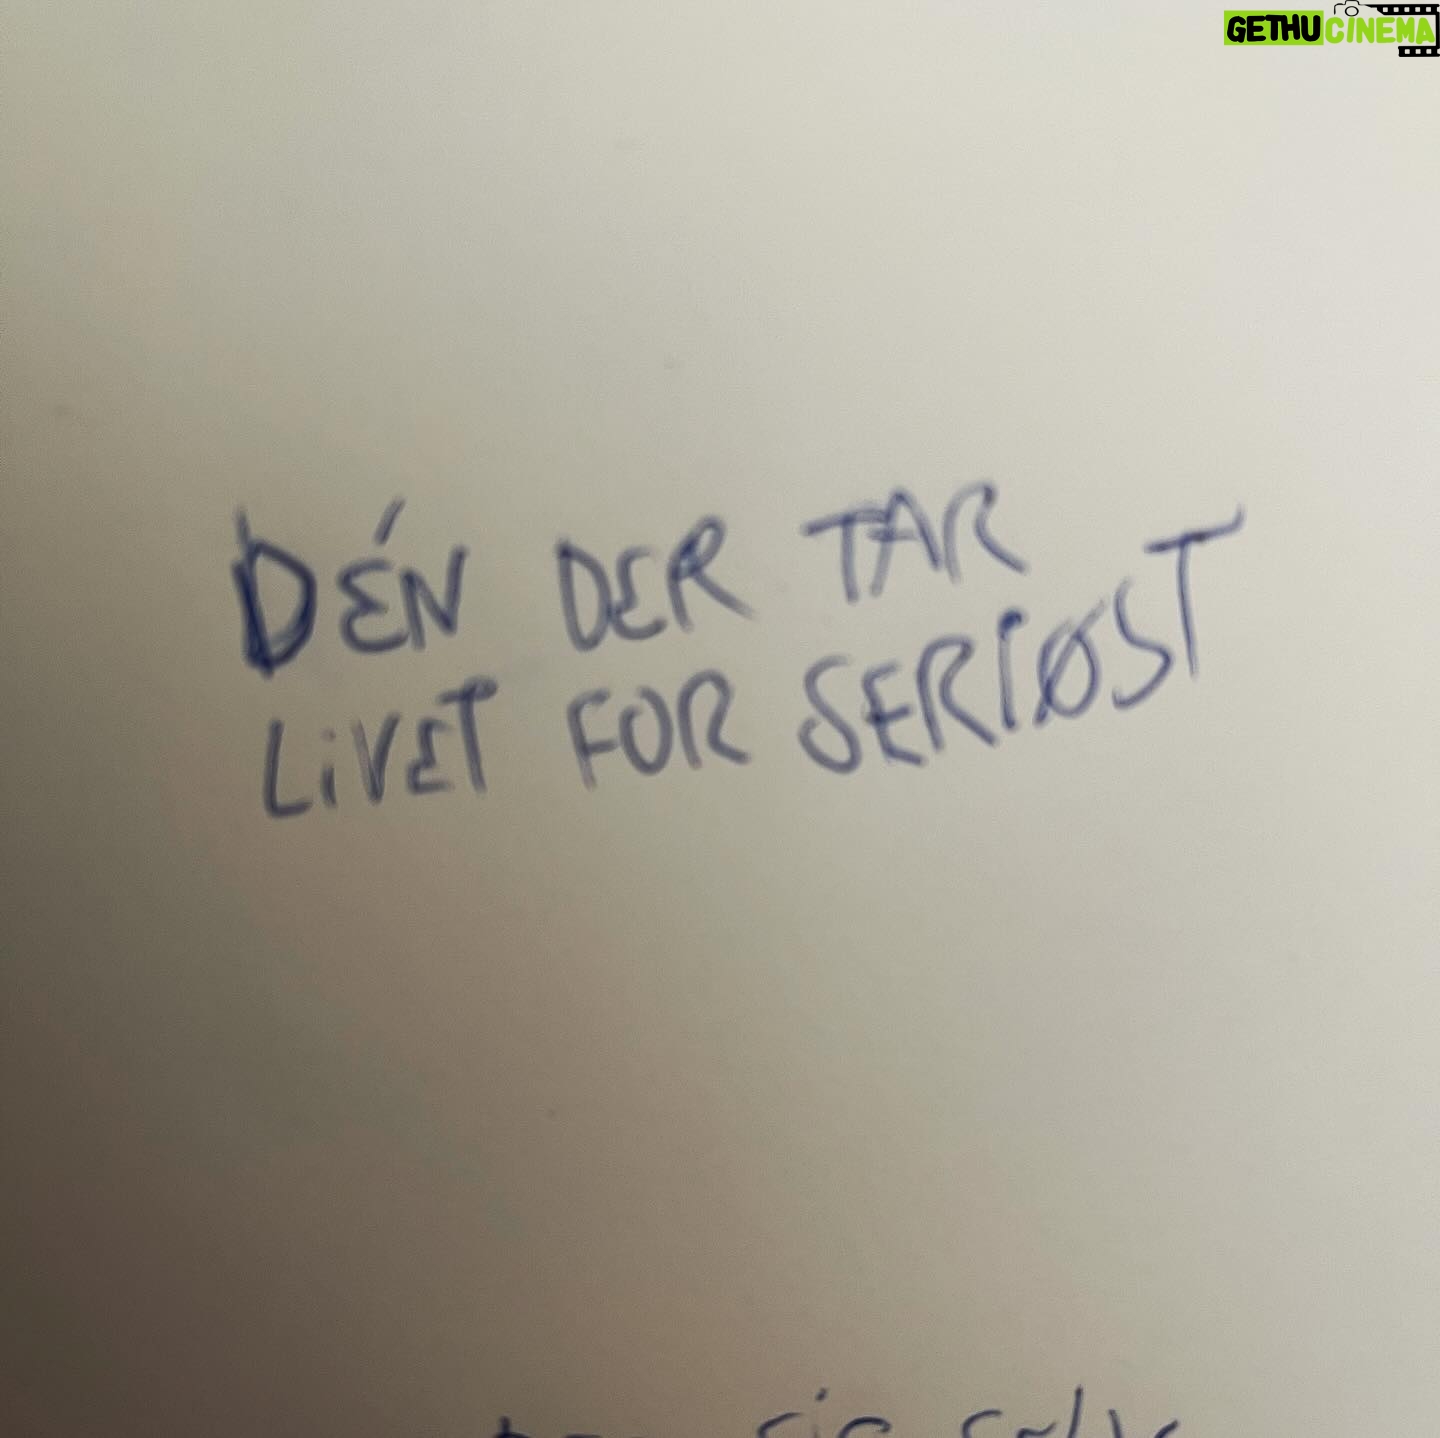 GETHUCINEMA
DÉN DER TAR
LiVET FOR SERIØST
sig selv